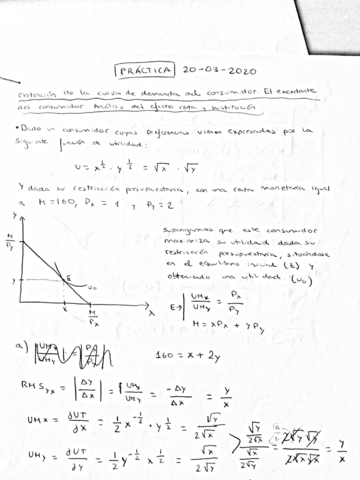 PRÁCTICA 20-03-2020
Obtención de la curva de demanda del consumidor. El excedente
del consumidor. Análisis del efecto renta y sustitución
• Dado un consumidor cuyas preferencias vienen expresadas por la
siguiente función de utilidad:
U = x^½ · y^½ = √x · √y
Y dada su restricción presupuestaria, con una renta monetaria igual
a M=160, Px = 1 y Py = 2
Y
M/Py
Y
E
U₀
X
M/Px
X
Supongamos que este consumidor
maximiza su utilidad dada su
restricción presupuestaria, situándose
en el equilibrio inicial (E) y
obteniendo una utilidad (U₀)
E → |UMx/UMy| = Px/Py
M = xPx + yPy
a) 160 = x + 2y
RMSyx = |Δy/Δx| = |UMx/UMy| = -Δy/Δx = y/x
UMx = ∂UT/∂x = 1/2 x^-½ · y^½ = √y/2√x
UMy = ∂UT/∂y = 1/2 y^-½ x^½ = √x/2√y
√y/2√x / √x/2√y = 2√y√y/2√x√x = y/x